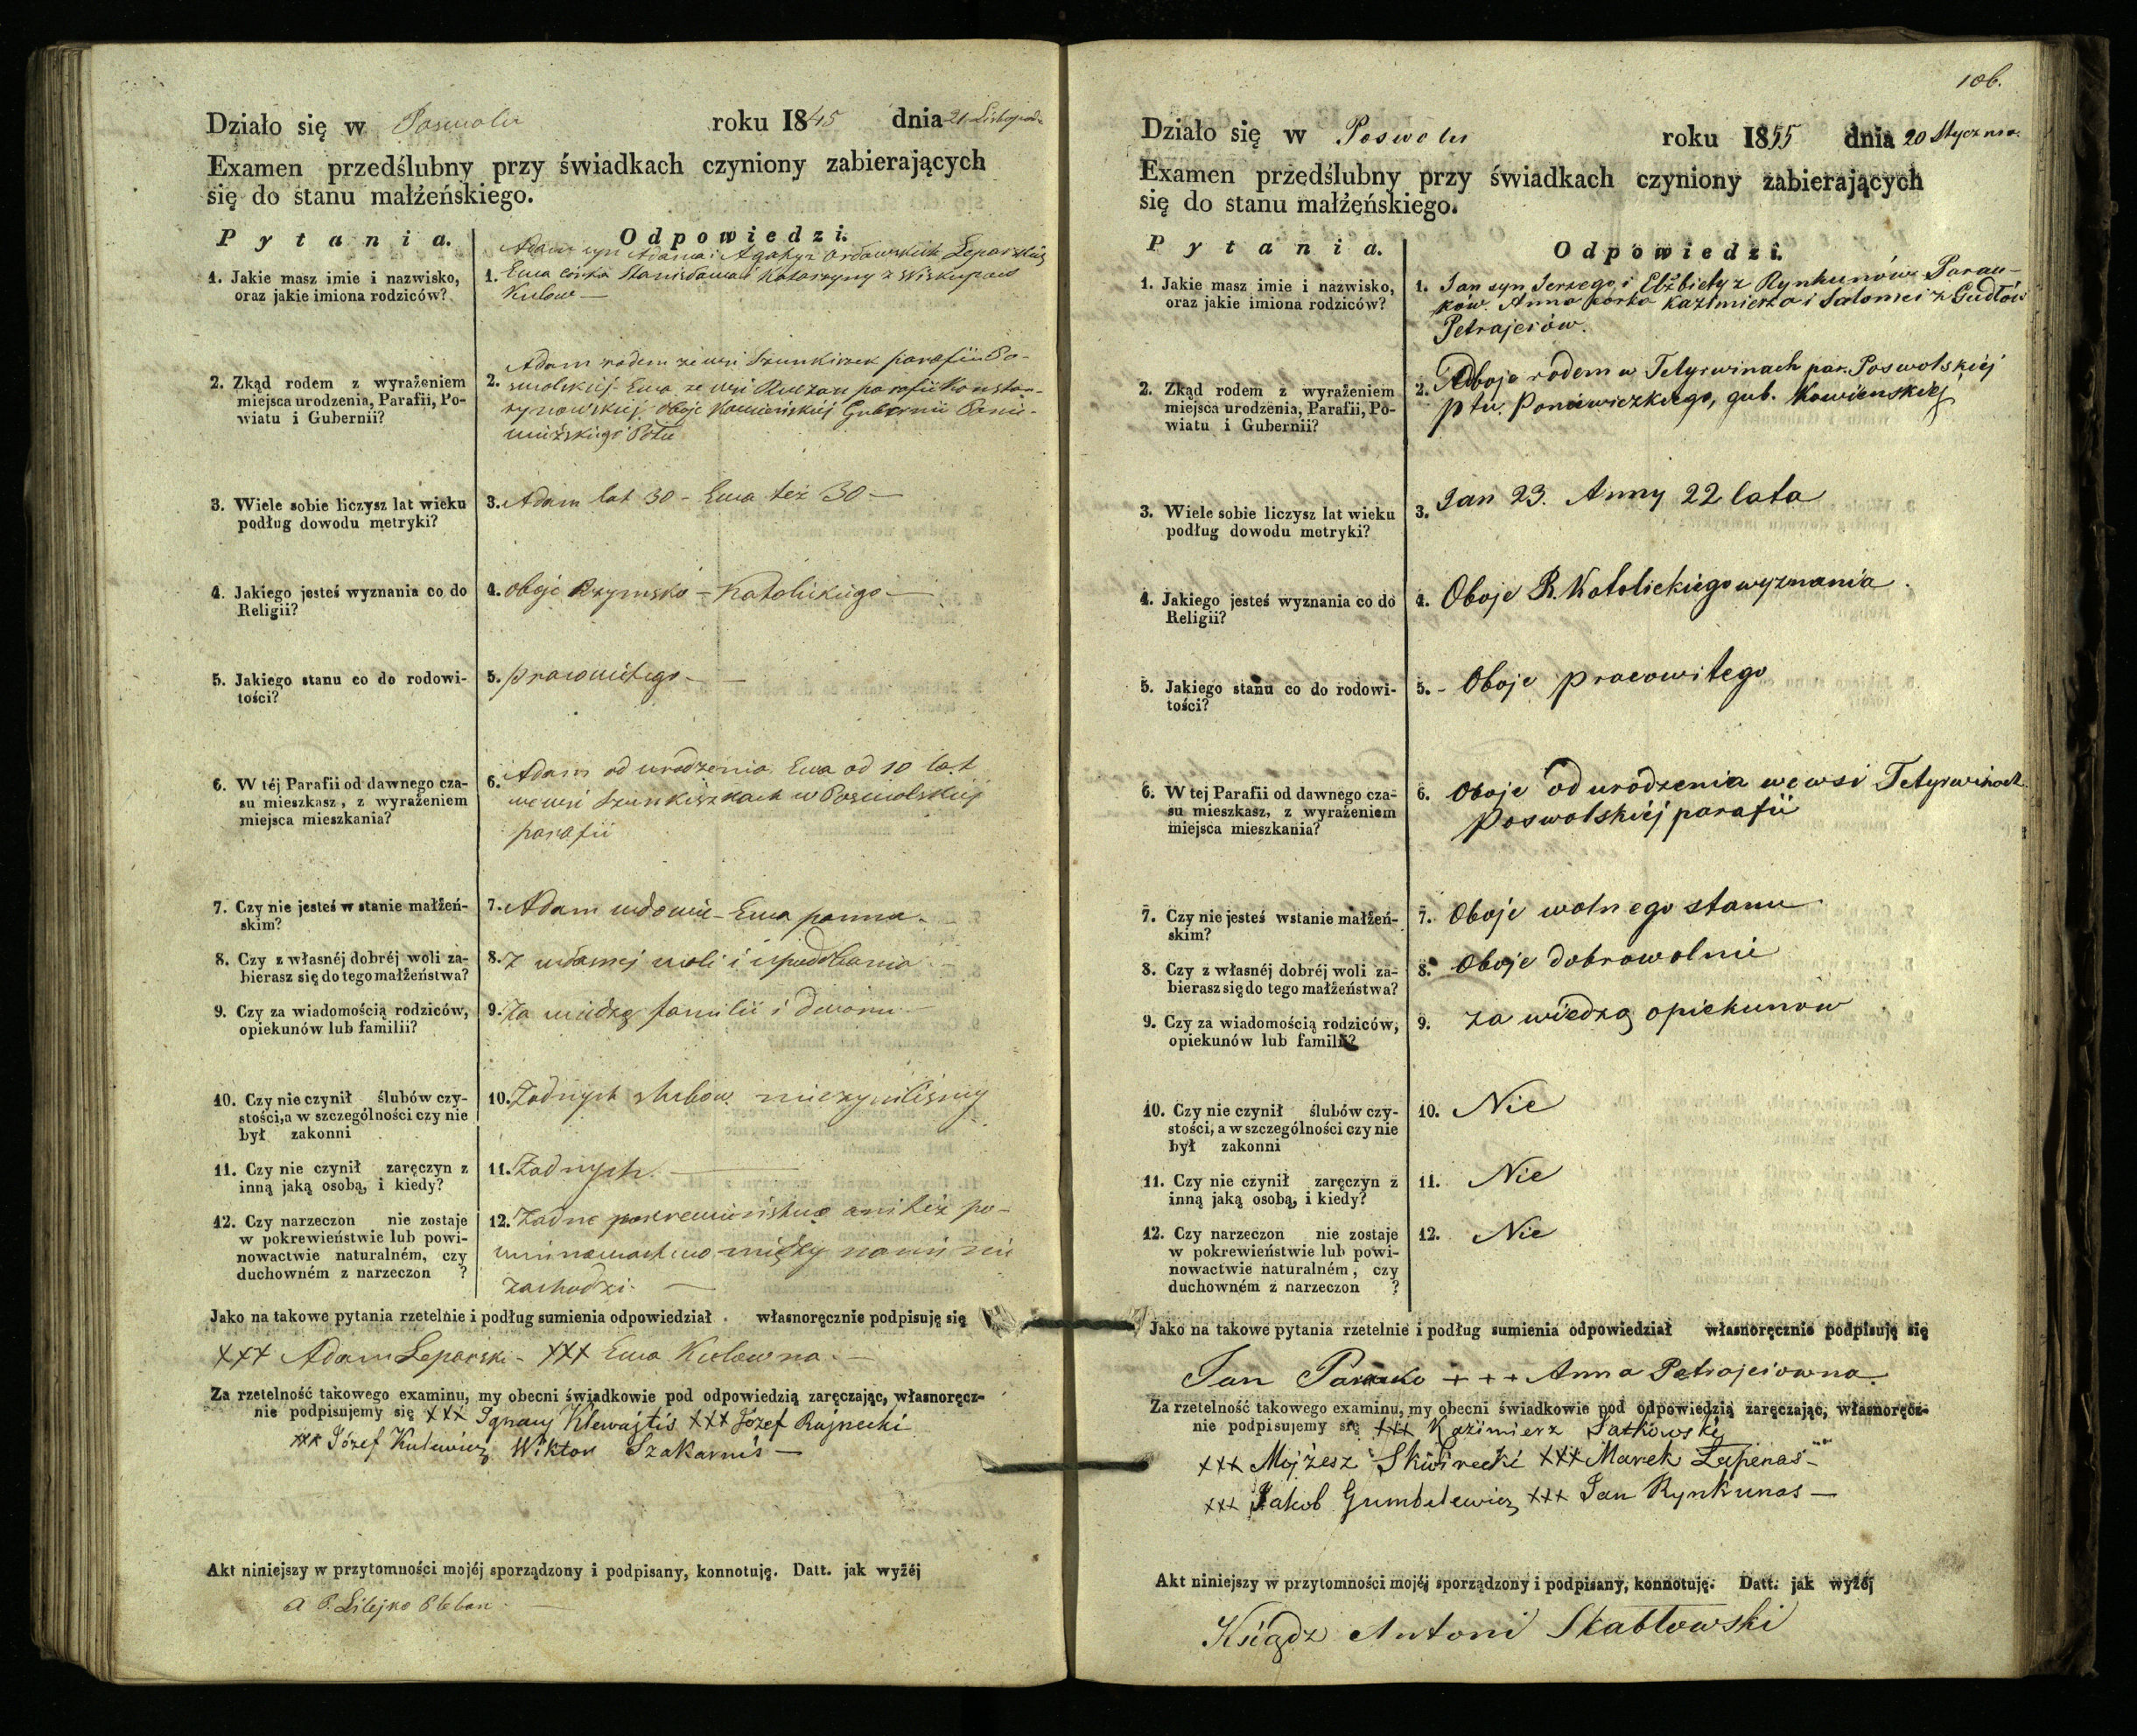 Działo się w Poswolu roku 1845 dnia 21 Listopada
Examen przedślubny przy świadkach czyniony zabierających
się do stanu małżeńskiego.
Pytania. Odpowiedzi.
1. Jakie masz imie i nazwisko,
oraz jakie imiona rodziców?
Adam syn Adama i Agaty z Leparskich
1. Ewa córka Stanisława i Katarzyny z
Kulow —
2. Zkąd rodem z wyrażeniem
miejsca urodzenia, Parafii, Po-
wiatu i Gubernii?
Adam rodem ze wsi Szunkiszek parafii Po-
2. swolskiej Ewa ze wsi parafii Konstan-
tynowskiej oboje Kowieńskiej Gubernii Ponie-
Pttu
3. Wiele sobie liczysz lat wieku
podług dowodu metryki?
3. Adam lat 30 – Ewa też 30 —
4. Jakiego jesteś wyznania co do
Religii?
4. oboje Rzymsko – Katolickiego —
5. Jakiego stanu co do rodowi-
tości?
5. pracowitego — —
6. W téj Parafii od dawnego cza-
su mieszkasz, z wyrażeniem
miejsca mieszkania?
6. Adam od urodzenia Ewa od 10 lat
we wsi Szunkiszkach w Poswolskiej
parafii
7. Czy nie jesteś w stanie małżeń-
skim?
7. Adam wdowiec – Ewa panna.
8. Czy z własnéj dobréj woli za-
bierasz się do tego małżeństwa?
8. Z własnej woli i upodobania —
9. Czy za wiadomością rodziców,
opiekunów lub familii?
9. Za wiedzą familii i dworu —
10. Czy nie czynił ślubów czy-
stości, a w szczególności czy nie
był zakonni
10. Żadnych slubow nieczyniliśmy
11. Czy nie czynił zaręczyn z
inną jaką osobą, i kiedy?
11. Żadnych. —
12. Czy narzeczon nie zostaje
w pokrewieństwie lub powi-
nowactwie naturalném, czy
duchowném z narzeczon ?
12. Żadne pokrewieństwo ani też po-
winowactwo między nami nie
zachodzi. —
Jako na takowe pytania rzetelnie i podług sumienia odpowiedział własnoręcznie podpisuję się
XXX Adam Leparski – XXX Ewa Kulowna. —
Za rzetelność takowego examinu, my obecni świadkowie pod odpowiedzią zaręczając, własnoręcz-
nie podpisujemy się XXX Ignacy Klewajtis XXX Józef Rajnecki
XXX Józef Kulewicz Wiktor Szakarnis —
Akt niniejszy w przytomności mojéj sporządzony i podpisany, konnotuję. Datt. jak wyżéj
Pleban —
106.
Działo się w Poswolu roku 1855 dnia 20 Stycznia.
Examen przedślubny przy świadkach czyniony zabierających
się do stanu małżeńskiego.
Pytania. Odpowiedzi.
1. Jakie masz imie i nazwisko,
oraz jakie imiona rodziców?
1. Jan syn Jerzego i Elżbiety z Rynkunów Paran-
ków. Anna corka Kazimierza i Salomei z Gudłów
Petrajciów.
2. Zkąd rodem z wyrażeniem
miejsca urodzenia, Parafii, Po-
wiatu i Gubernii?
2. Oboje rodem w Tetyrwinach par. Poswolskiéj
ptu. Poniewiezkiego, gub. Kowienskiej
3. Wiele sobie liczysz lat wieku
podług dowodu metryki?
3. Jan 23. Anny 22 lata
4. Jakiego jesteś wyznania co do
Religii?
4. Oboje R. Katolickiego wyznania.
5. Jakiego stanu co do rodowi-
tości?
5. – Oboje pracowitego
6. W tej Parafii od dawnego cza-
su mieszkasz, z wyrażeniem
miejsca mieszkania?
6. Oboje od urodzenia we wsi Tetyrwinach
Poswolskiéj parafii
7. Czy nie jesteś wstanie małżeń-
skim?
7. Oboje wolnego stanu.
8. Czy z własnéj dobréj woli za-
bierasz się do tego małżeństwa?
8. Oboje dobrowolnie
9. Czy za wiadomością rodziców,
opiekunów lub familii?
9. Za wiedzą opiekunow
10. Czy nie czynił ślubów czy-
stości, a w szczególności czy nie
był zakonni
10. Nie
11. Czy nie czynił zaręczyn z
inną jaką osobą, i kiedy?
11. Nie
12. Czy narzeczon nie zostaje
w pokrewieństwie lub powi-
nowactwie naturalném, czy
duchowném z narzeczon ?
12. Nie
Jako na takowe pytania rzetelnie i podług sumienia odpowiedział własnoręcznie podpisuję się
Jan + + + Anna Petrajciowna.
Za rzetelność takowego examinu, my obecni świadkowie pod odpowiedzią zaręczając, własnoręcz-
nie podpisujemy się XXX Kazimierz Satkowski
XXX Mojżesz Skwirecki XXX Marek Łapenas –
XXX Jakob Gumbelewicz XXX Jan Rynkunas —
Akt niniejszy w przytomności mojéj sporządzony i podpisany, konnotuję. Datt. jak wyżéj
Ksiądz Antoni Skabłowski